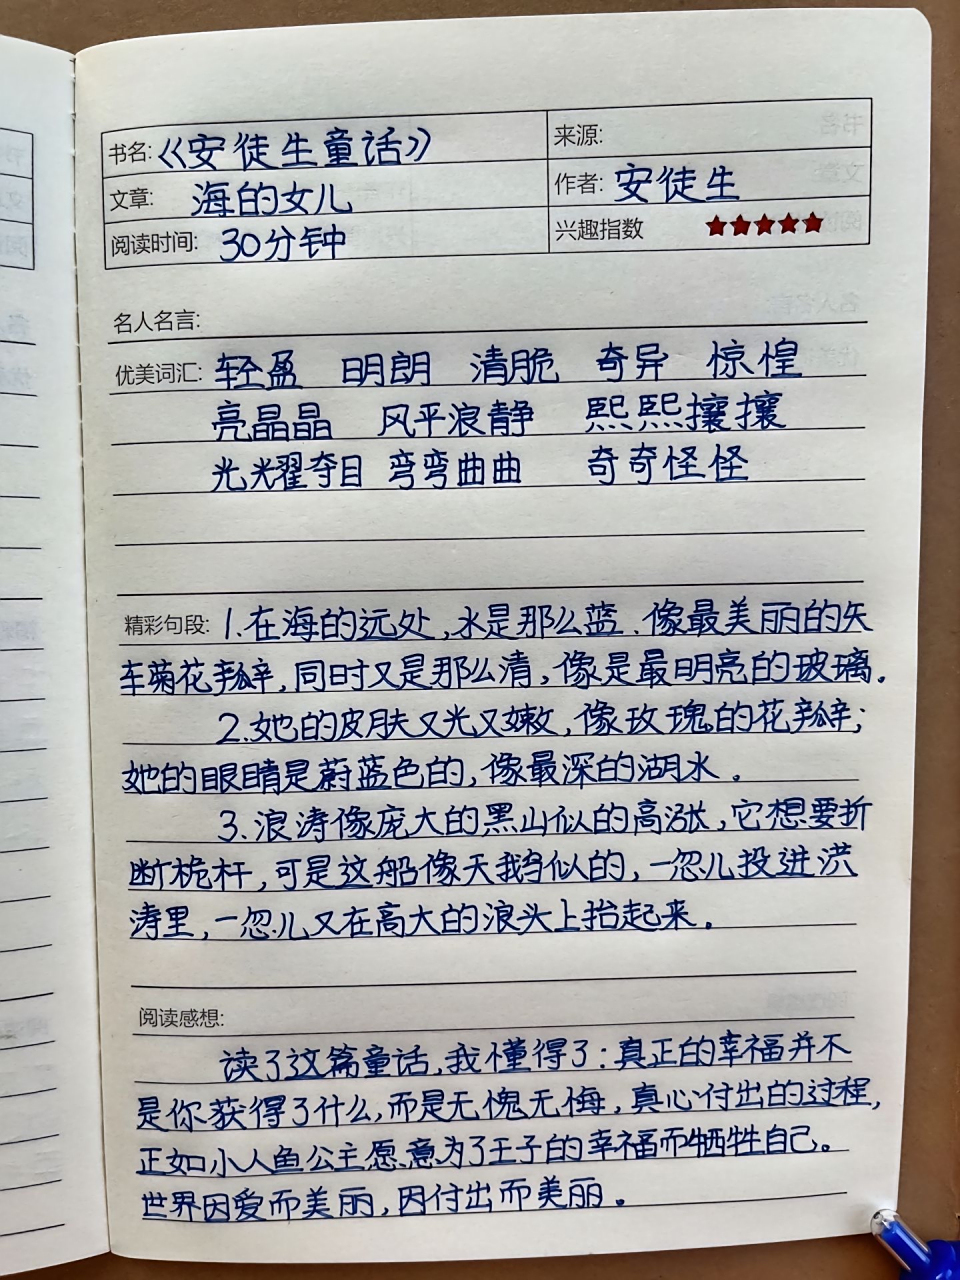 书名:《安徒生童话》 来源:
文章: 海的女儿 作者: 安徒生
阅读时间: 30分钟 兴趣指数 ★★★★★
名人名言:
优美词汇: 轻盈 明朗 清脆 奇异 惊惶
亮晶晶 风平浪静 熙熙攘攘
光光耀夺目 弯弯曲曲 奇奇怪怪
精彩句段: 1.在海的远处,水是那么蓝、像最美丽的矢
车菊花瓣,同时又是那么清,像是最明亮的玻璃.
2.她的皮肤又光又嫩,像玫瑰的花瓣;
她的眼睛是蔚蓝色的,像最深的湖水.
3.浪涛像庞大的黑山似的高涨,它想要折
断桅杆,可是这船像天鹅似的,一忽儿投进洪
涛里,一忽儿又在高大的浪头上抬起来.
阅读感想:
读了这篇童话,我懂得了:真正的幸福并不
是你获得了什么,而是无愧无悔,真心付出的过程,
正如小人鱼公主愿意为了王子的幸福而牺牲自己。
世界因爱而美丽,因付出而美丽.